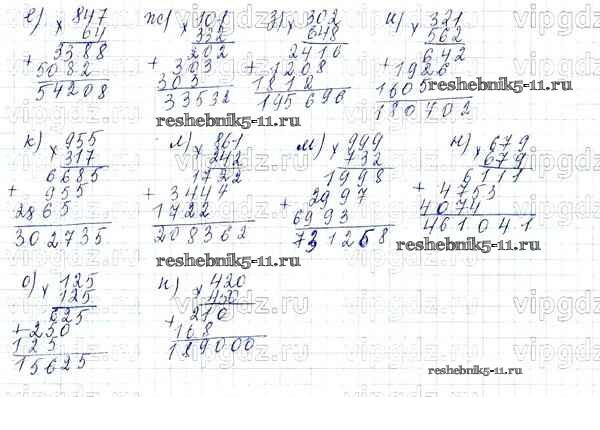 е) × 847   ж) × 101   з) × 302   и) × 321
64   332   648   562
3388   202   2416   642
+ 5082   + 303   + 1208   + 1926
54208   303   1812   1605
33532   195696   180402
reshebnik5-11.ru
reshebnik5-11.ru
к) × 955   л) × 861   м) × 999   н) × 679
317   242   732   679
6685   1722   1998   6111
+ 955   + 3444   + 2997   + 4753
2865   1722   6993   4074
302735   208362   731268   461041
reshebnik5-11.ru
reshebnik5-11.ru
о) × 125   п) × 420
125   450
625   210
+ 250   + 168
125   189000
15625
reshebnik5-11.ru
vipgdz.ru